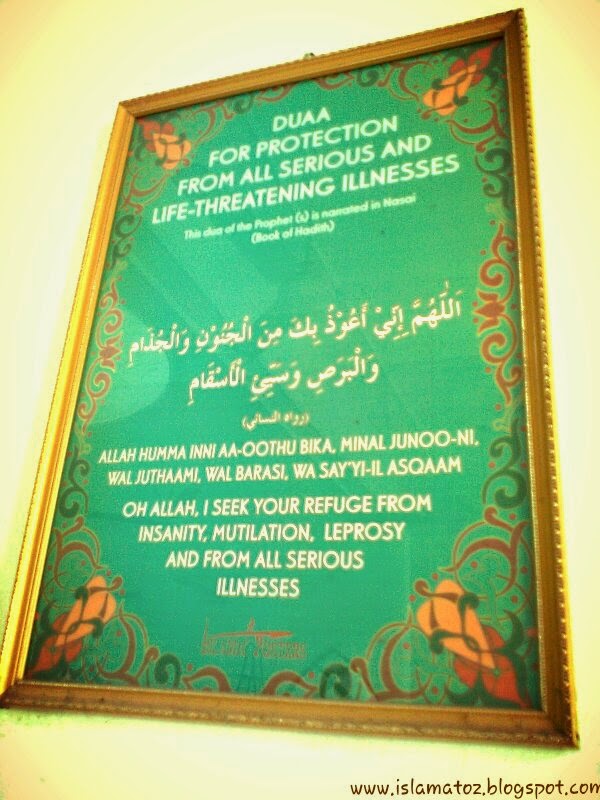 DUAA
FOR PROTECTION
FROM ALL SERIOUS AND
LIFE-THREATENING ILLNESSES
This dua of the Prophet (s) is narrated in Nasai
(Book of Hadith)
اَللّٰهُمَّ إِنِّيْ أَعُوْذُ بِكَ مِنَ الْجُنُوْنِ وَالْجُذَامِ
وَالْبَرَصِ وَسَيِّئِ الْأَسْقَامِ
(رواه النسائي)
ALLAH HUMMA INNI AA-OOTHU BIKA, MINAL JUNOO-NI,
WAL JUTHAAMI, WAL BARASI, WA SAY'YI-IL ASQAAM
OH ALLAH, I SEEK YOUR REFUGE FROM
INSANITY, MUTILATION, LEPROSY
AND FROM ALL SERIOUS
ILLNESSES
www.islamatoz.blogspot.com